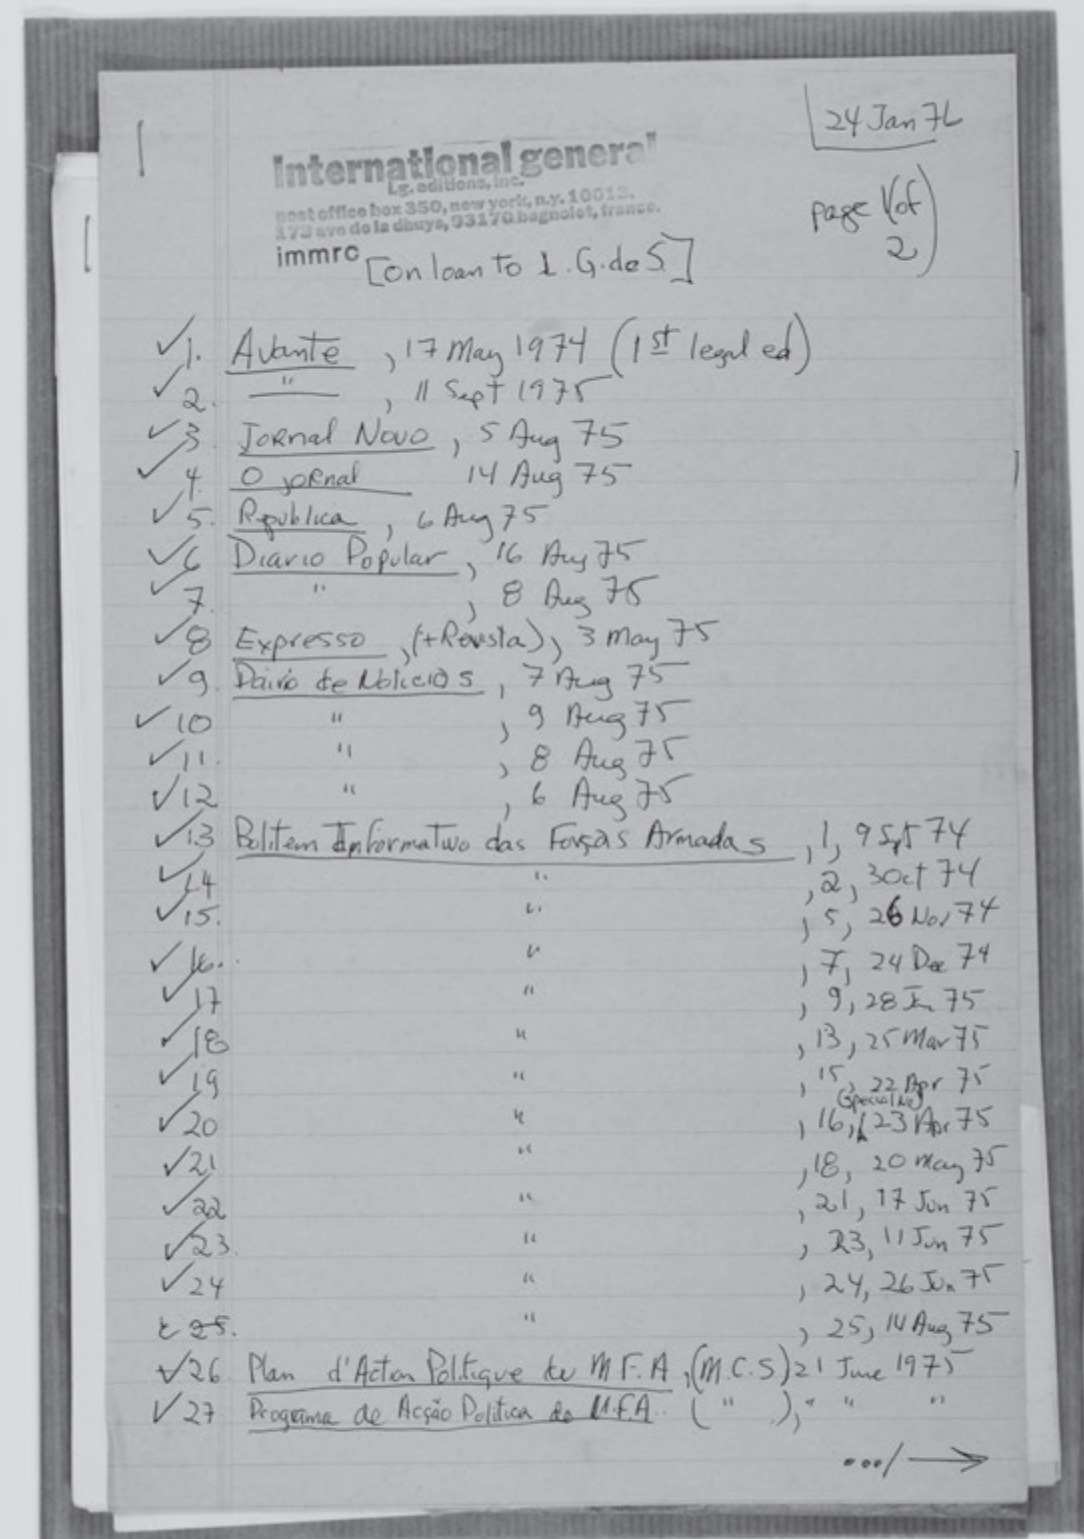 24 Jan 76
international general
I.g. editions, inc.
post office box 350, new york, n.y. 10013.
173 ave de la dhuys, 93170 bagnolet, france.
page 1(of 2)
immrc
[On loan to I.G. de S.]
✓1. Avante, 17 May 1974 (1st legal ed)
✓2. " , 11 Sept 1975
✓3. Jornal Novo, 5 Aug 75
✓4. O jornal 14 Aug 75
✓5. Republica, 6 Aug 75
✓6 Diario Popular, 16 Aug 75
✓7. " , 8 Aug 75
✓8 Expresso, (+Revista), 3 May 75
✓9. Dairio de Noticias, 7 Aug 75
✓10 " , 9 Aug 75
✓11. " , 8 Aug 75
✓12 " , 6 Aug 75
✓13 Bolitem Informativo das Forças Armadas, 1, 9 Spt 74
✓14 " , 2, 3 Oct 74
✓15. " , 5, 26 Nov 74
✓16. " , 7, 24 Dec 74
✓17 " , 9, 28 Jan 75
✓18 " , 13, 25 Mar 75
✓19 " , 15, 22 Apr 75
✓20 " , 16, (Special No) 23 Apr 75
✓21 " , 18, 20 May 75
✓22 " , 21, 17 Jun 75
✓23. " , 23, 11 Jun 75
✓24 " , 24, 26 Jun 75
25. " , 25, 14 Aug 75
✓26 Plan d'Acton Politique du M.F.A, (M.C.S) 21 June 1975
✓27 Programa de Acção Politica do M.F.A. ( " ), " " "
.../→